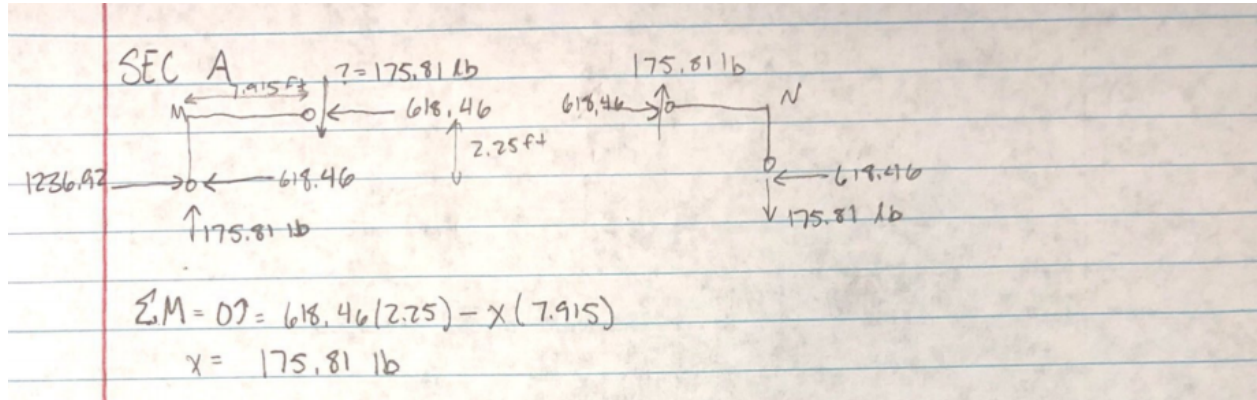 SEC A
7.915 ft
?= 175.81 lb
175.81 lb
M
618.46
618.46
N
2.25 ft
1236.92
618.46
618.46
175.81 lb
175.81 lb
ΣM = 0↻ = 618.46(2.25) - x(7.915)
x = 175.81 lb